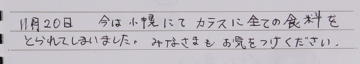 11月20日 今は小幌にてカラスに全ての食料を
とられてしまいました。みなさまもお気をつけください.